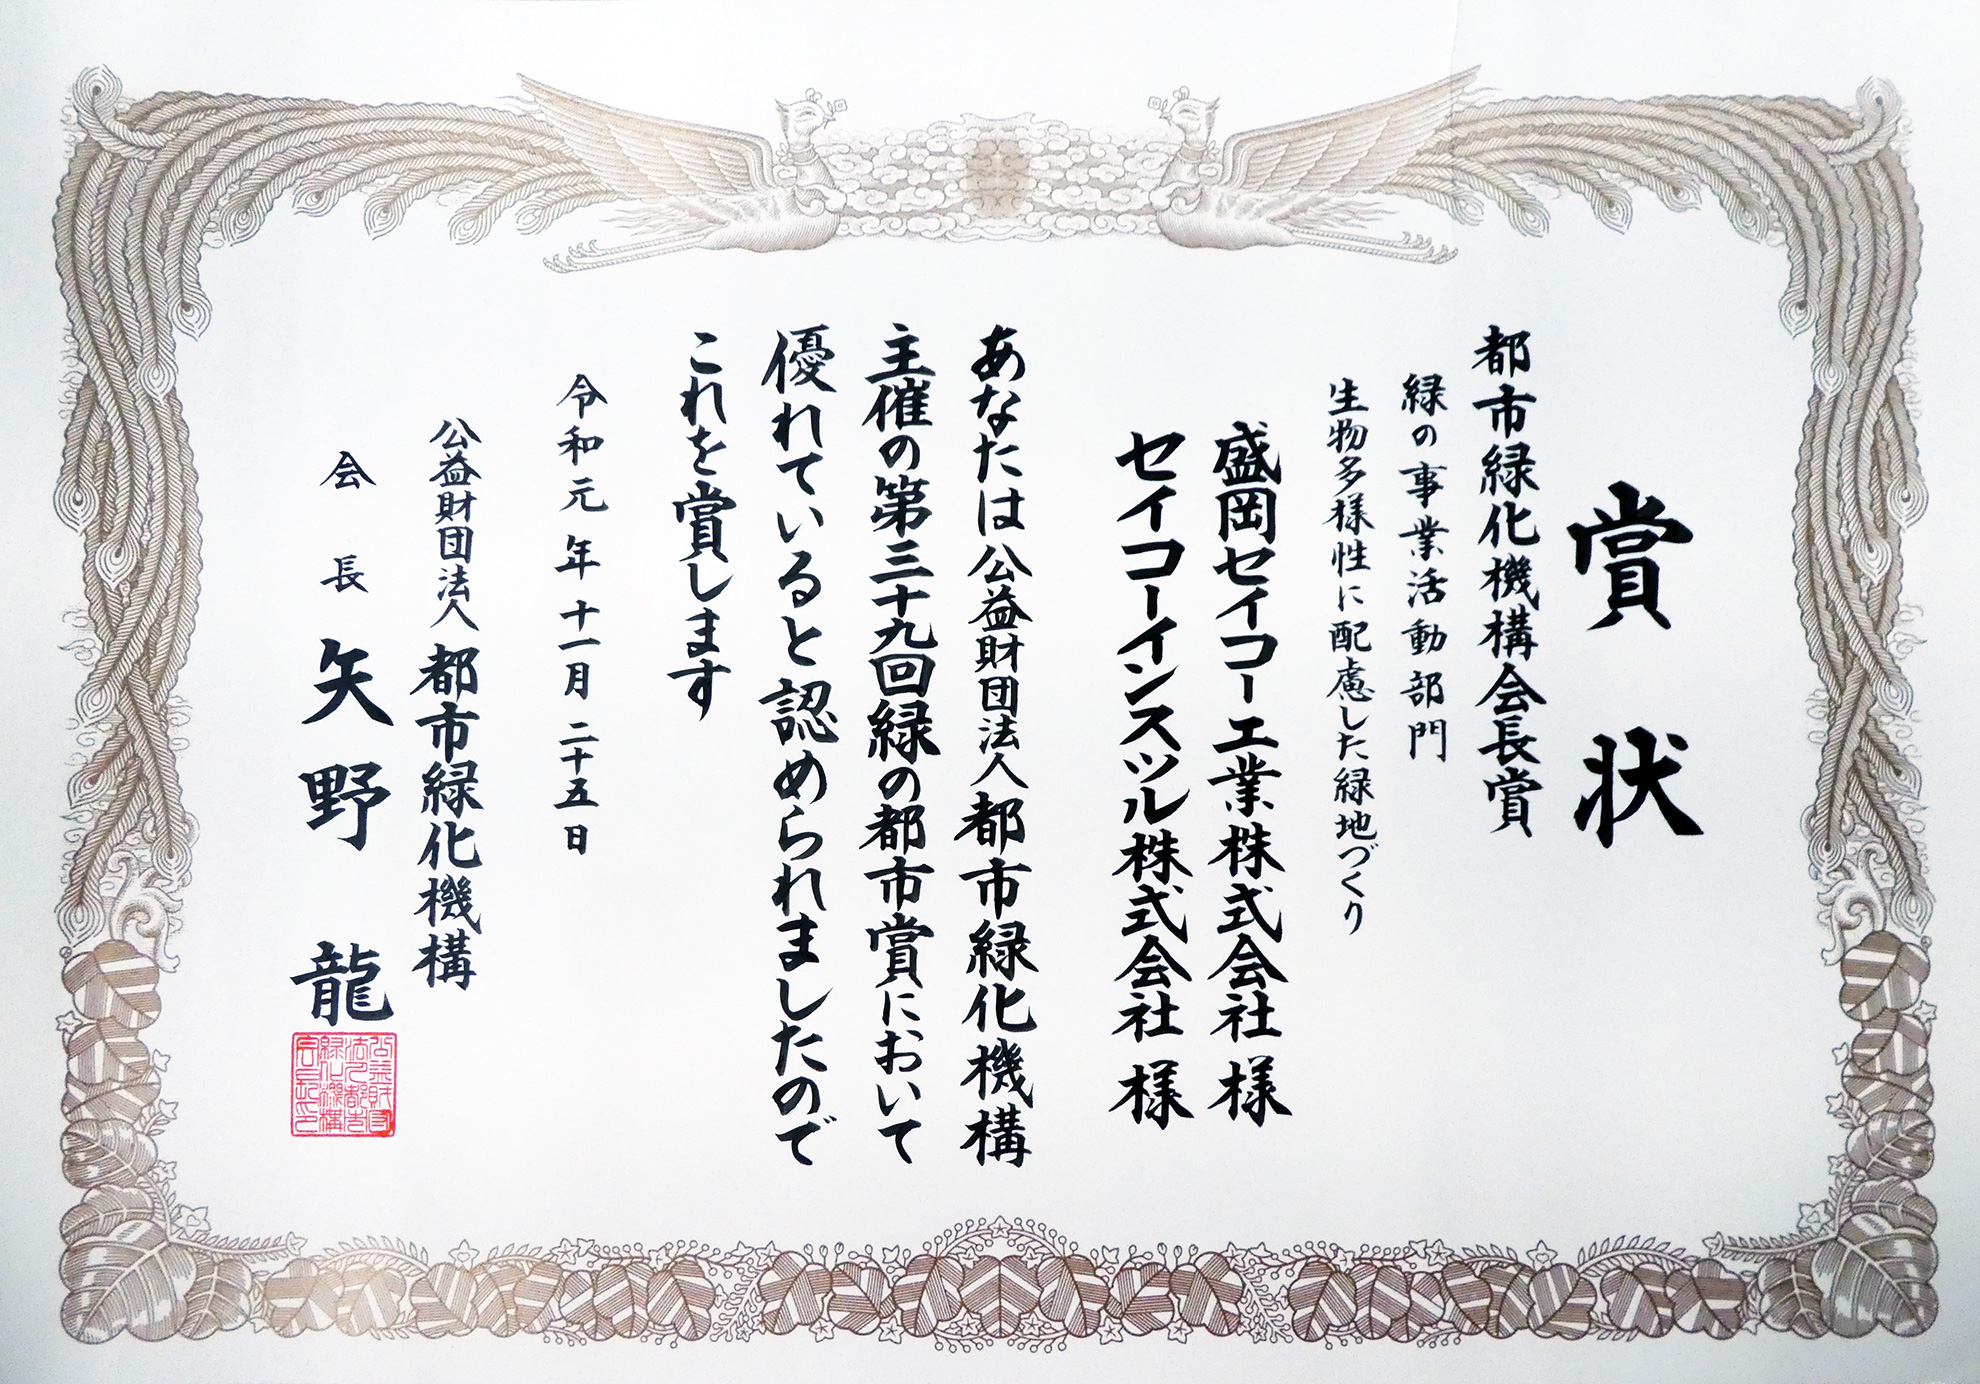 賞状
都市緑化機構会長賞
緑の事業活動部門
生物多様性に配慮した緑地づくり
盛岡セイコー工業株式会社 様
セイコーインスツル株式会社 様
あなたは公益財団法人都市緑化機構
主催の第三十九回緑の都市賞において
優れていると認められましたので
これを賞します
令和元年十一月二十五日
公益財団法人 都市緑化機構
会長 矢野 龍
公益財団
法人都市
緑化機構
会長印